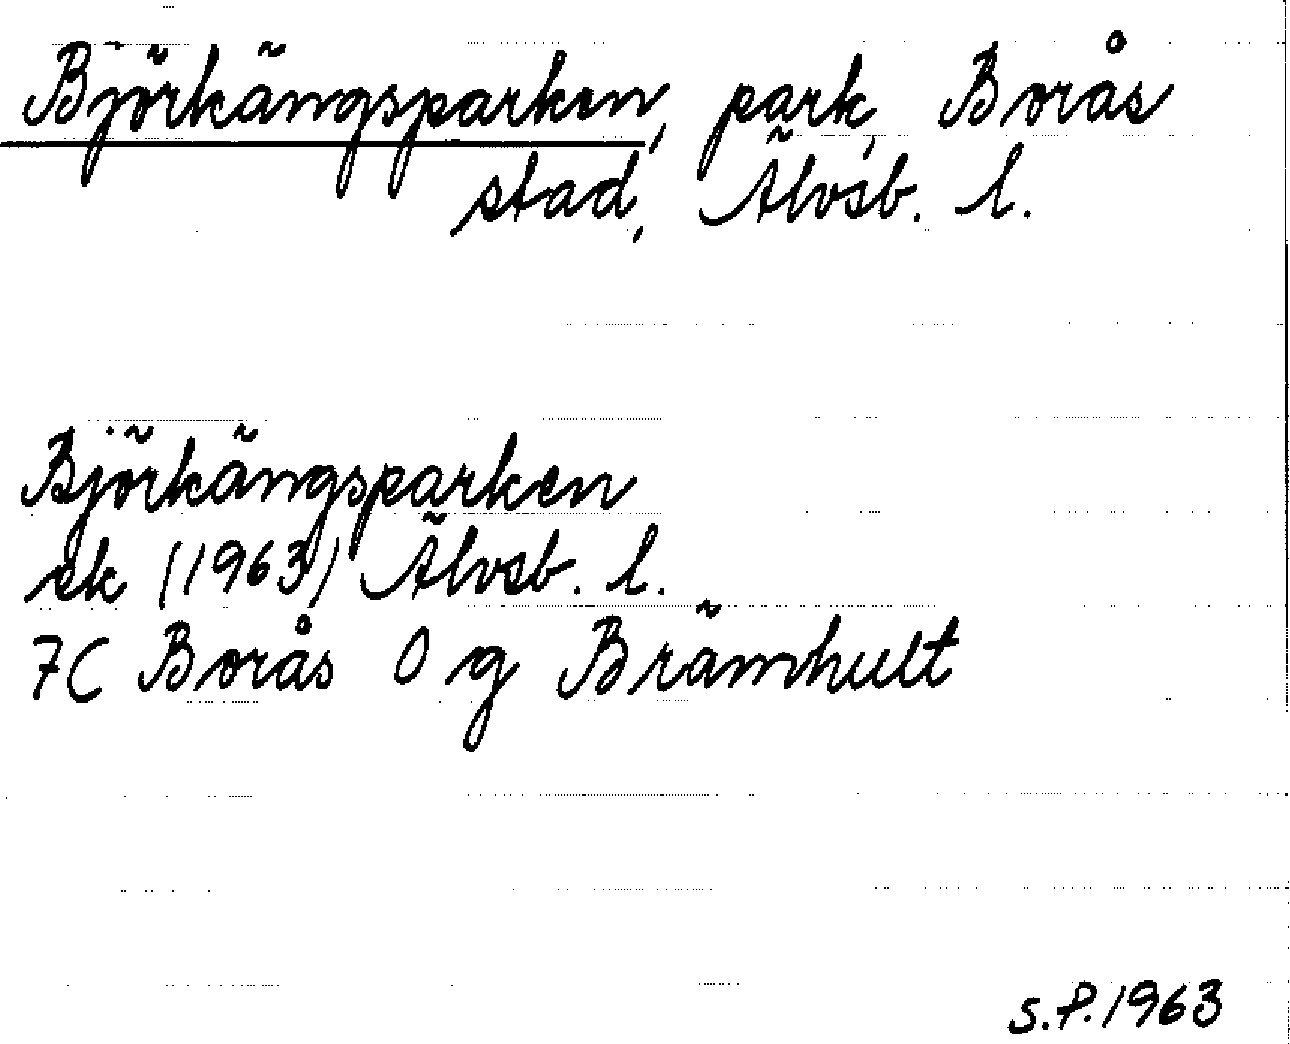 Björkängsparken, park, Borås
stad, Älvsb. l.
Björkängsparken
ek (1963) Älvsb. l.
7C Borås O g Brämhult
S.P. 1963